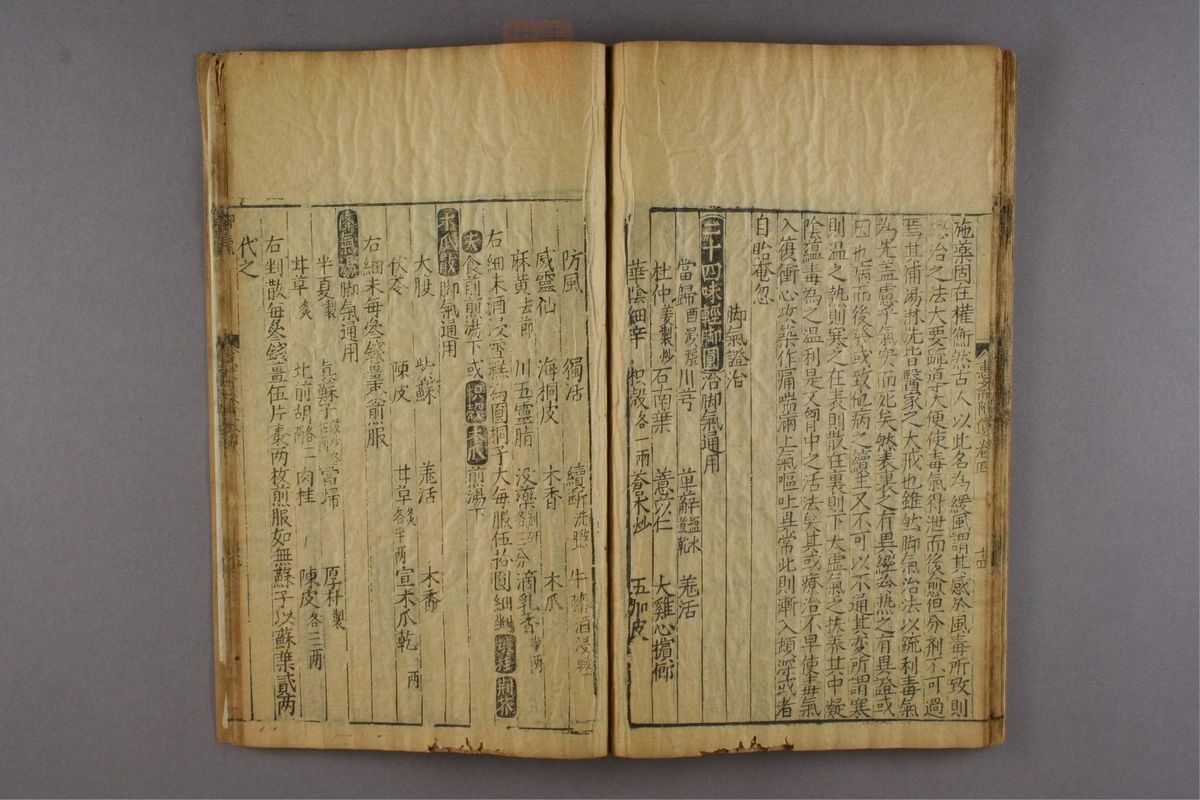 施藥固在權衡然古人以此名為緩風謂其感於風毒所致則
治之法大要疏導大便使毒氣得泄而後愈但分劑不可過
焉其補湯淋洗皆醫家之大戒也雖然脚氣治法以疏利毒氣
為先盖慮乎氣實而死矣然表裏之有異經去熱之有異證或
因他病而後或致他病之續生又不可以不通其変所謂寒
則温之熱則寒之在表則散在裏則下大虚氣之扶養其中凝
陰藴毒為之温利是又胷中之活法矣其或療治不早使毒氣
入復衝心攻築作痛喘滿上氣嘔吐異常此則漸入頑深或者
自貽奄忽
脚氣證治
三十四味輕脚圓治脚氣通用
當歸酒浸 川芎 萆薢鹽水煮乾 羗活
杜仲姜製炒 石南葉 薏苡仁 大雞心檳榔
華陰細辛 枳殼各一兩 蒼术炒 五加皮
防風 獨活 續斷洗 牛膝酒浸
威靈仙 海桐皮 木香 木瓜
麻黄去節 川五靈脂 没藥各三分 滴乳香半两
右細末酒浸蒸 為圓桐子大每服伍拾圓細剉 荊芥
食前煎湯下或枳殼木瓜煎湯下
木瓜散脚氣通用
大腹 紫蘇 羗活 木香
茯苓 陳皮 甘草炙各半两 宣木瓜乾 两
右細末每叁錢薑棗煎服
降氣湯脚氣通用
半夏製 真蘇子 當歸 厚朴製
甘草炙 北前胡 肉桂 陳皮各三两
右剉散每叁錢薑伍片棗两枚煎服如無蘇子以蘇葉貳两
代之